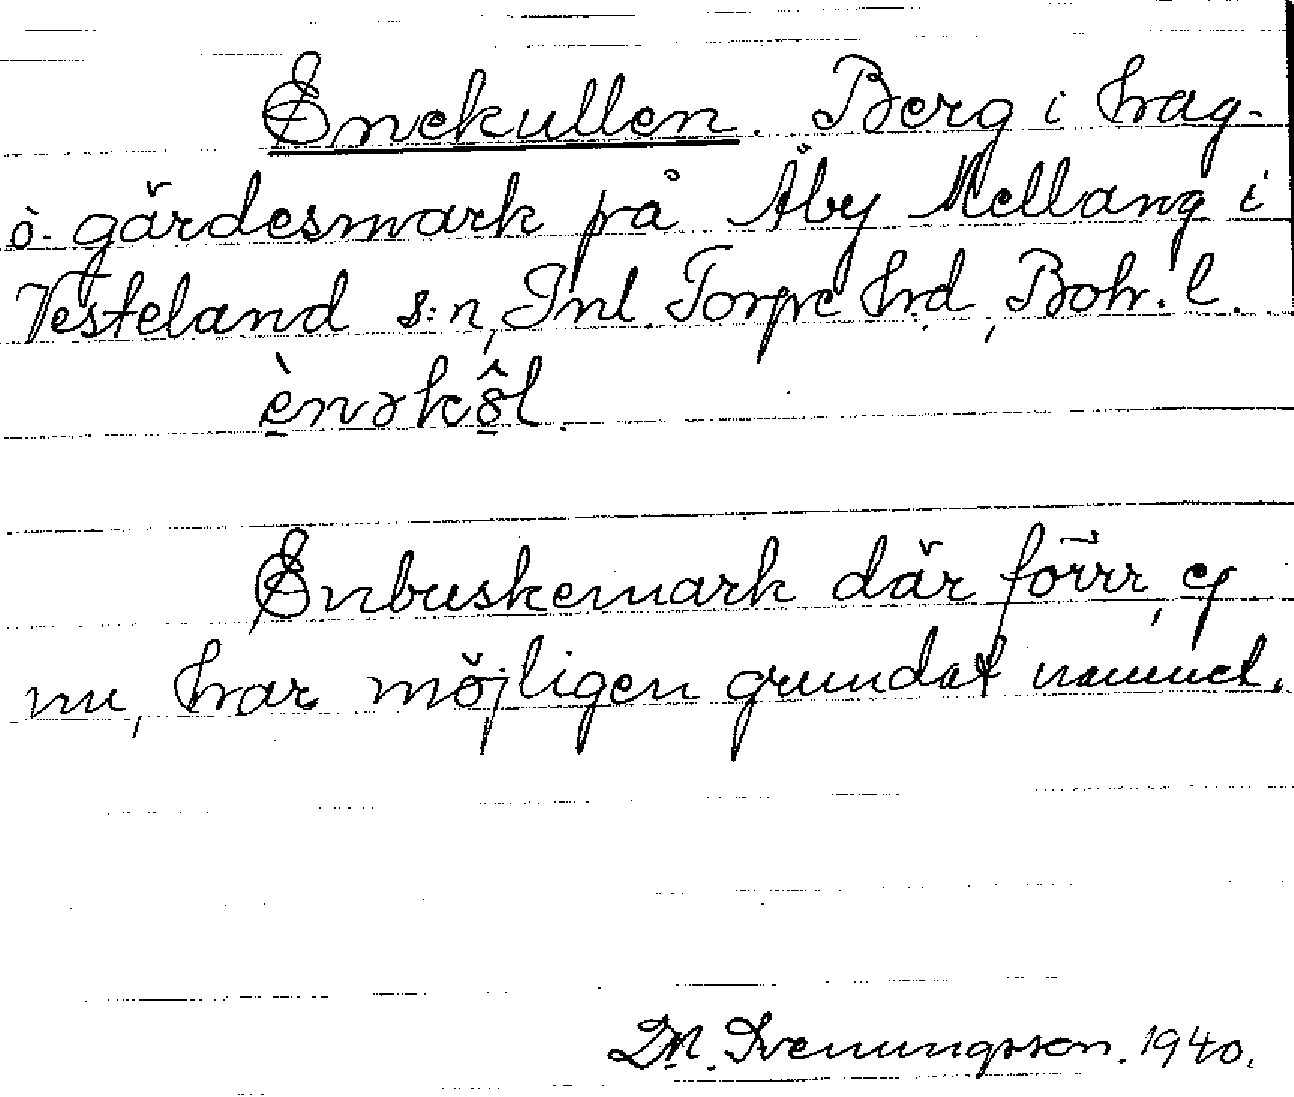 Enekullen. Berg i hag-
o. gärdesmark på Åby Mellang i
Vesteland s:n, Inl. Torpe hrd, Boh. l.
ènəkôl.
Enbuskemark där förr, ej
nu, har möjligen grundat namnet.
Svenungsson. 1940.